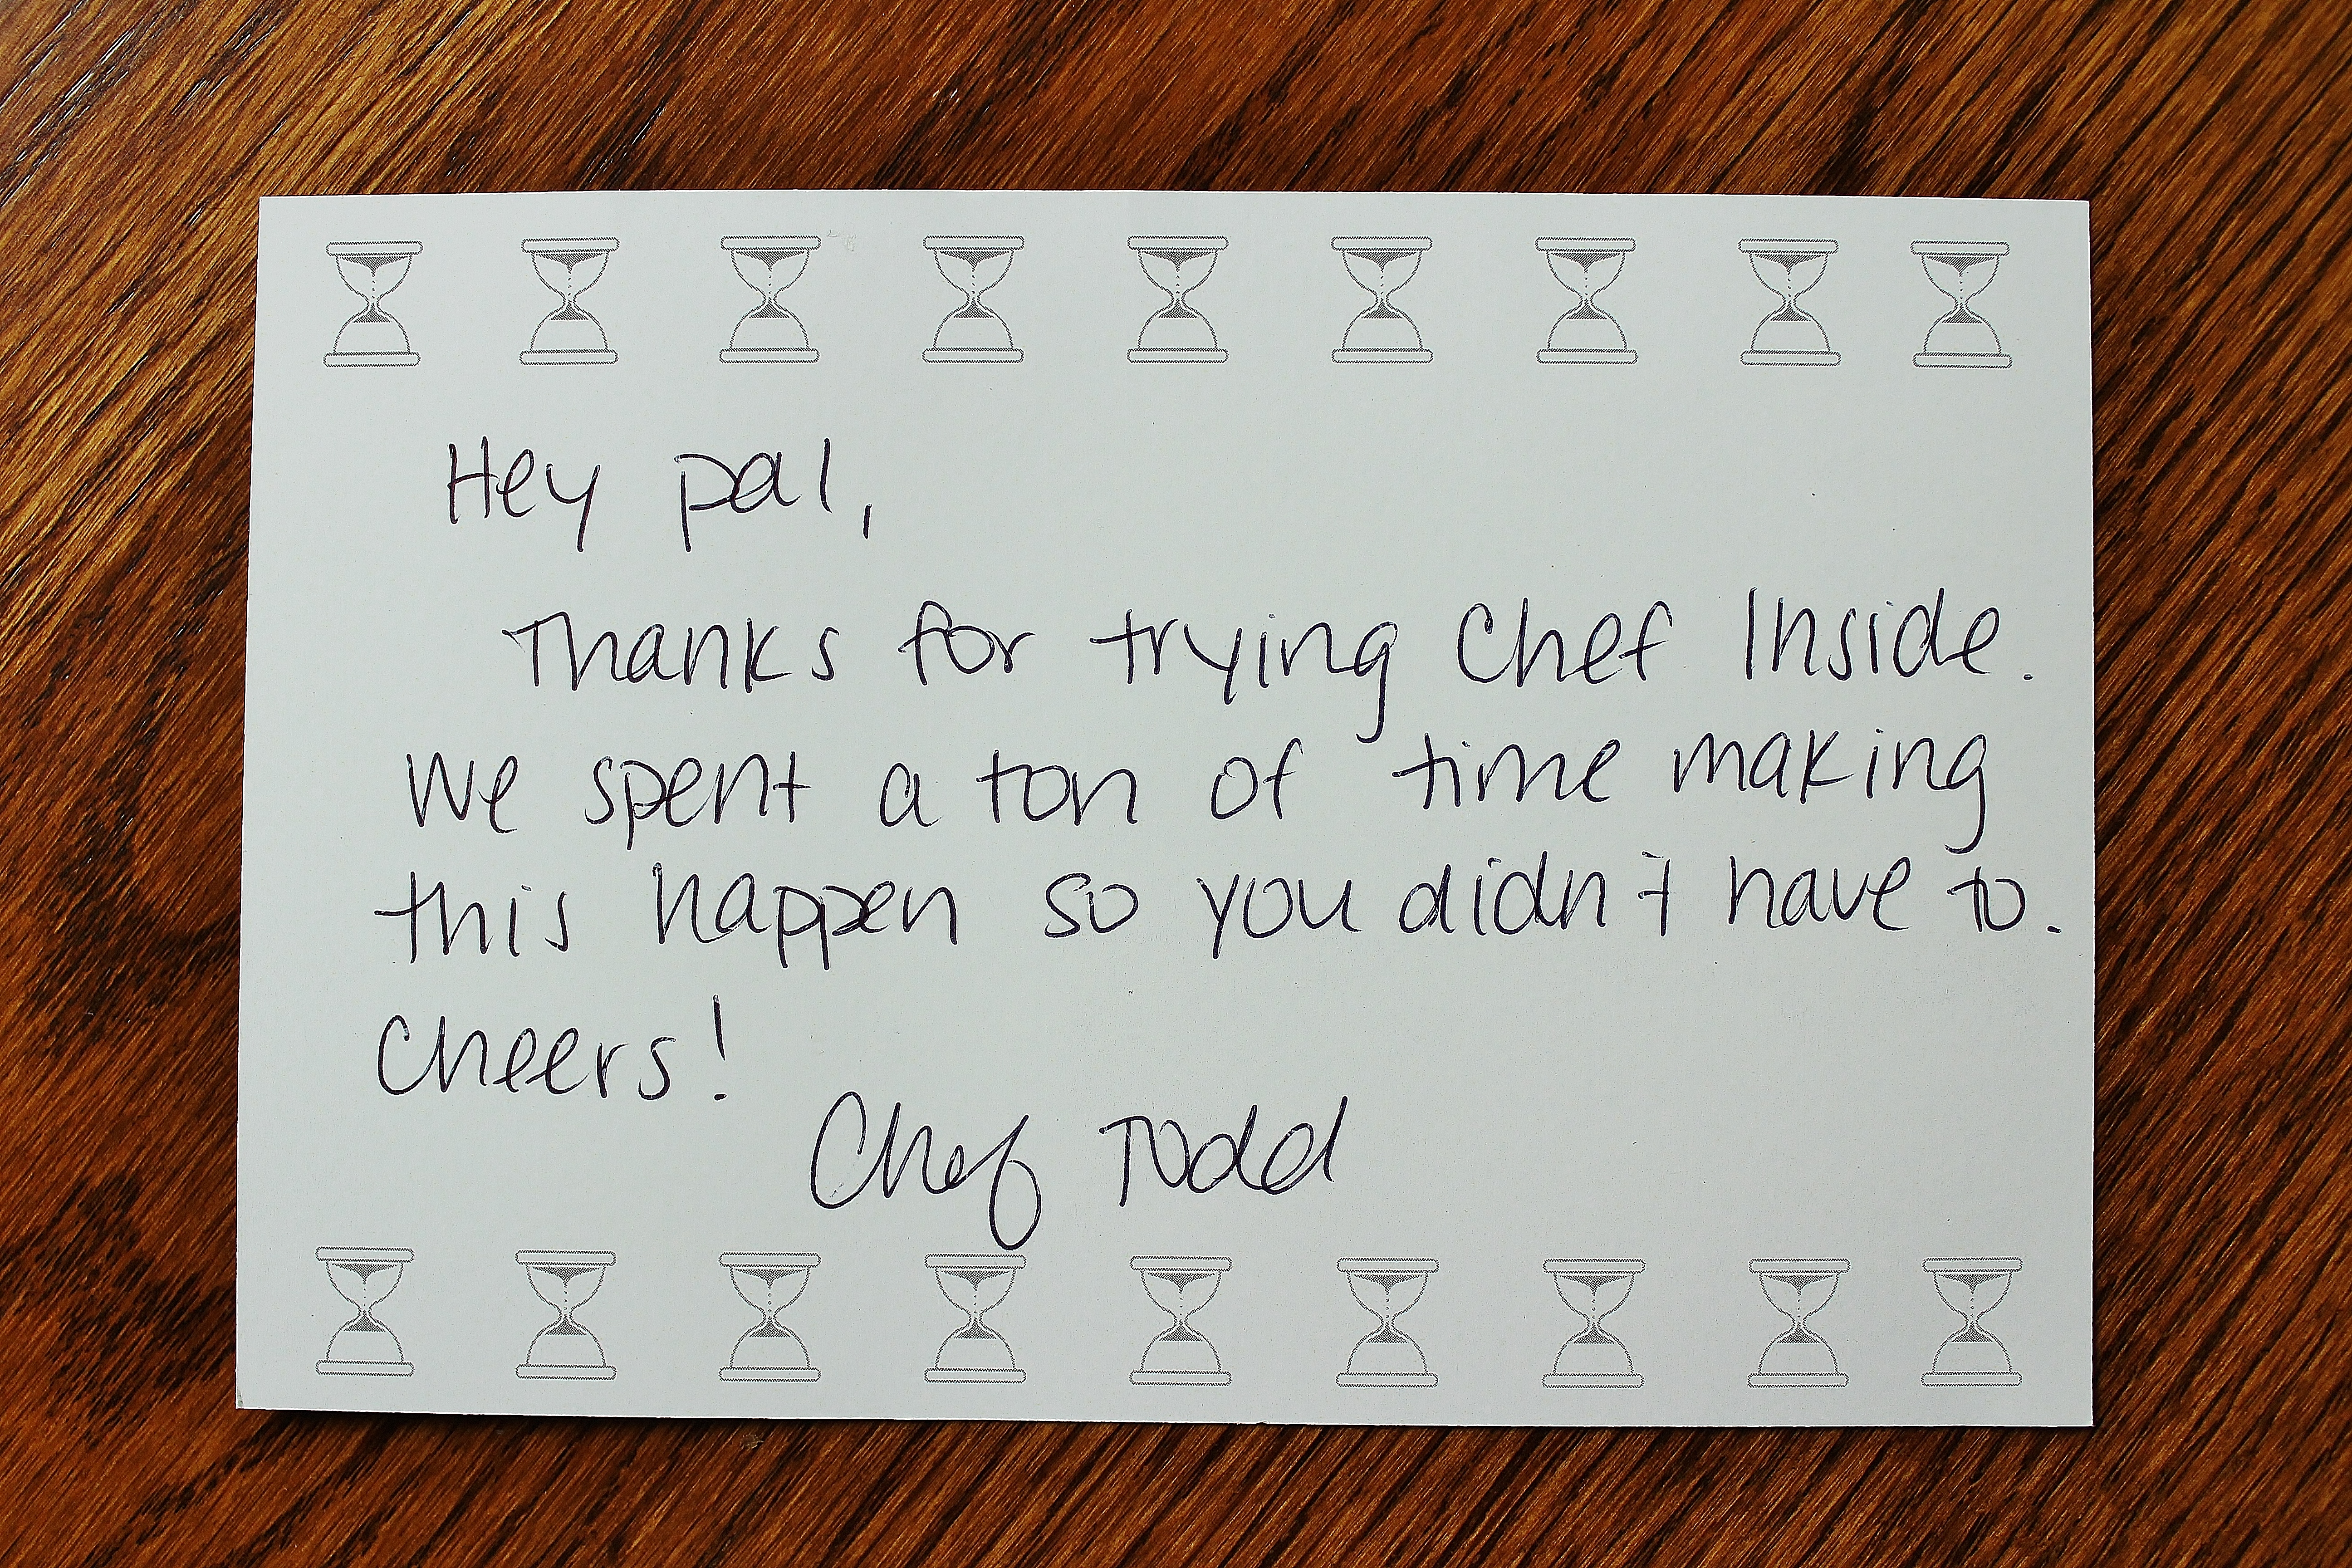 Hey pal,
Thanks for trying Chef Inside.
We spent a ton of time making
this happen so you didn't have to.
Cheers!
Chef Todd